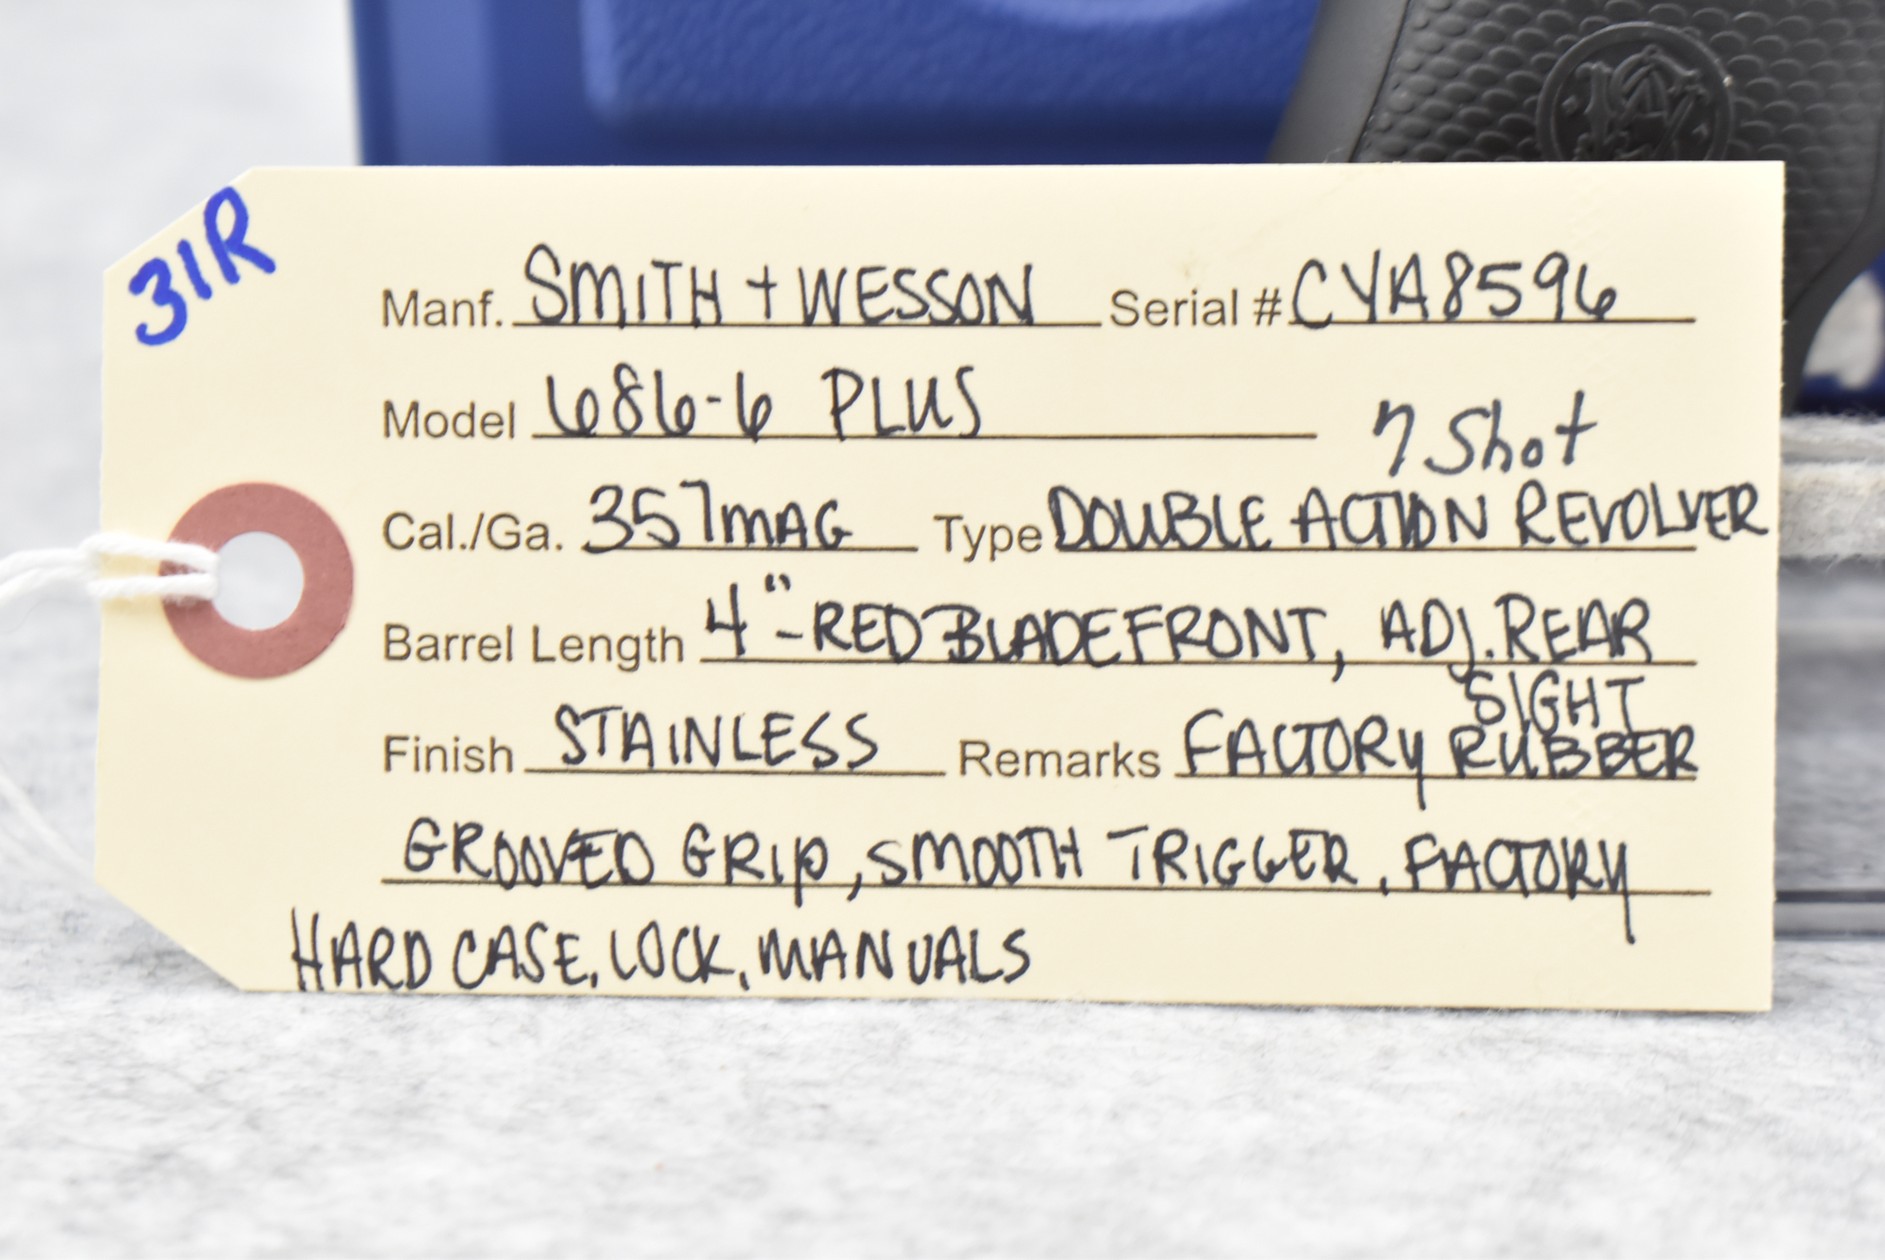 31R
Manf. SMITH + WESSON Serial # CYA8596
Model 686-6 PLUS
7 Shot
Cal./Ga. 357MAG Type DOUBLE ACTION REVOLVER
Barrel Length 4"-RED BLADE FRONT, ADJ. REAR
SIGHT
Finish STAINLESS Remarks FACTORY RUBBER
GROOVED GRIP, SMOOTH TRIGGER, FACTORY
HARD CASE, LOCK, MANUALS